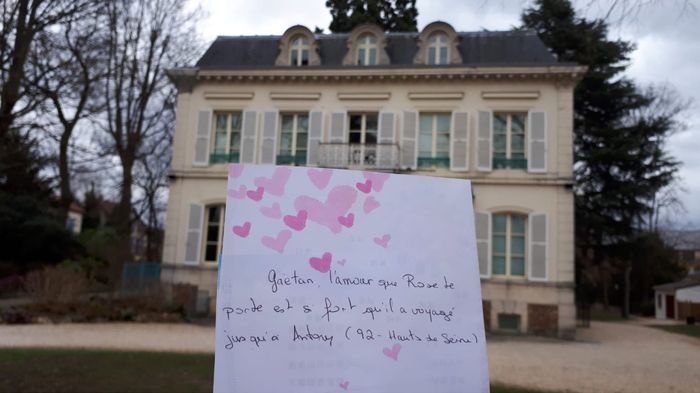 Gaëtan, l'amour que Rose te
porte est si fort qu'il a voyagé
jusqu'à Antony (92 - Hauts de Seine)